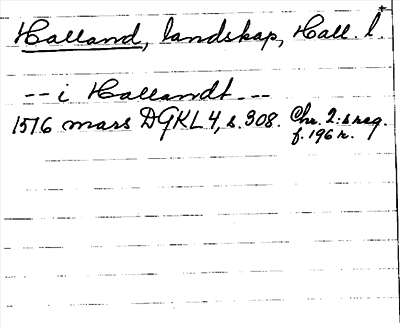 Halland, landskap, Hall. l.
-- i Hallandt --
1516 mars DGKL 4, s. 308. Chr. 2:s reg.
f. 196 r.